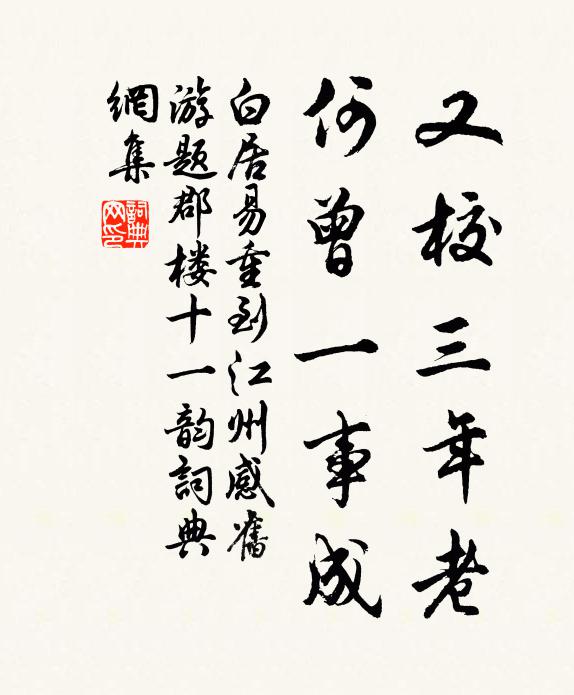 又校三年老
何曾一事成
白居易重到江州感舊
游题郡楼十一韵詞典
網集
詞典網印